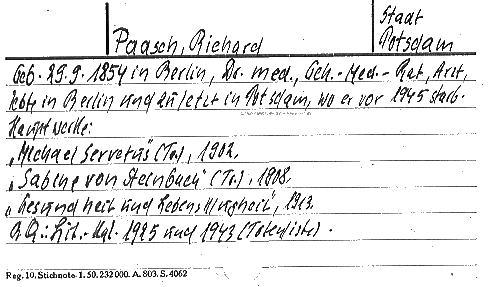 Stadt
Paasch, Richard Potsdam
Geb. 29.9. 1854 in Berlin, Dr. med., Geh.-Med.-Rat, Arzt,
lebte in Berlin und zuletzt in Potsdam, wo er vor 1945 starb.
Hauptwerke:
„Michael Servetus" (Tr.), 1902,
„Sabine von Steinbach" (Tr.), 1908,
„Gesundheit und Lebensklugheit", 1913.
B.Q.: Lit.-Kal. 1925 und 1943 (Totenliste).
Reg. 10. Stichnote 1. 50. 232000. A. 803. S. 4062